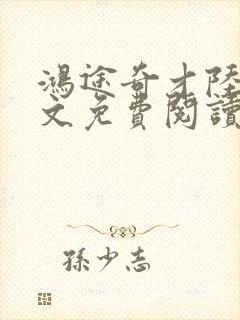 鴻途奇才陸
文免費閱讀
孫少志